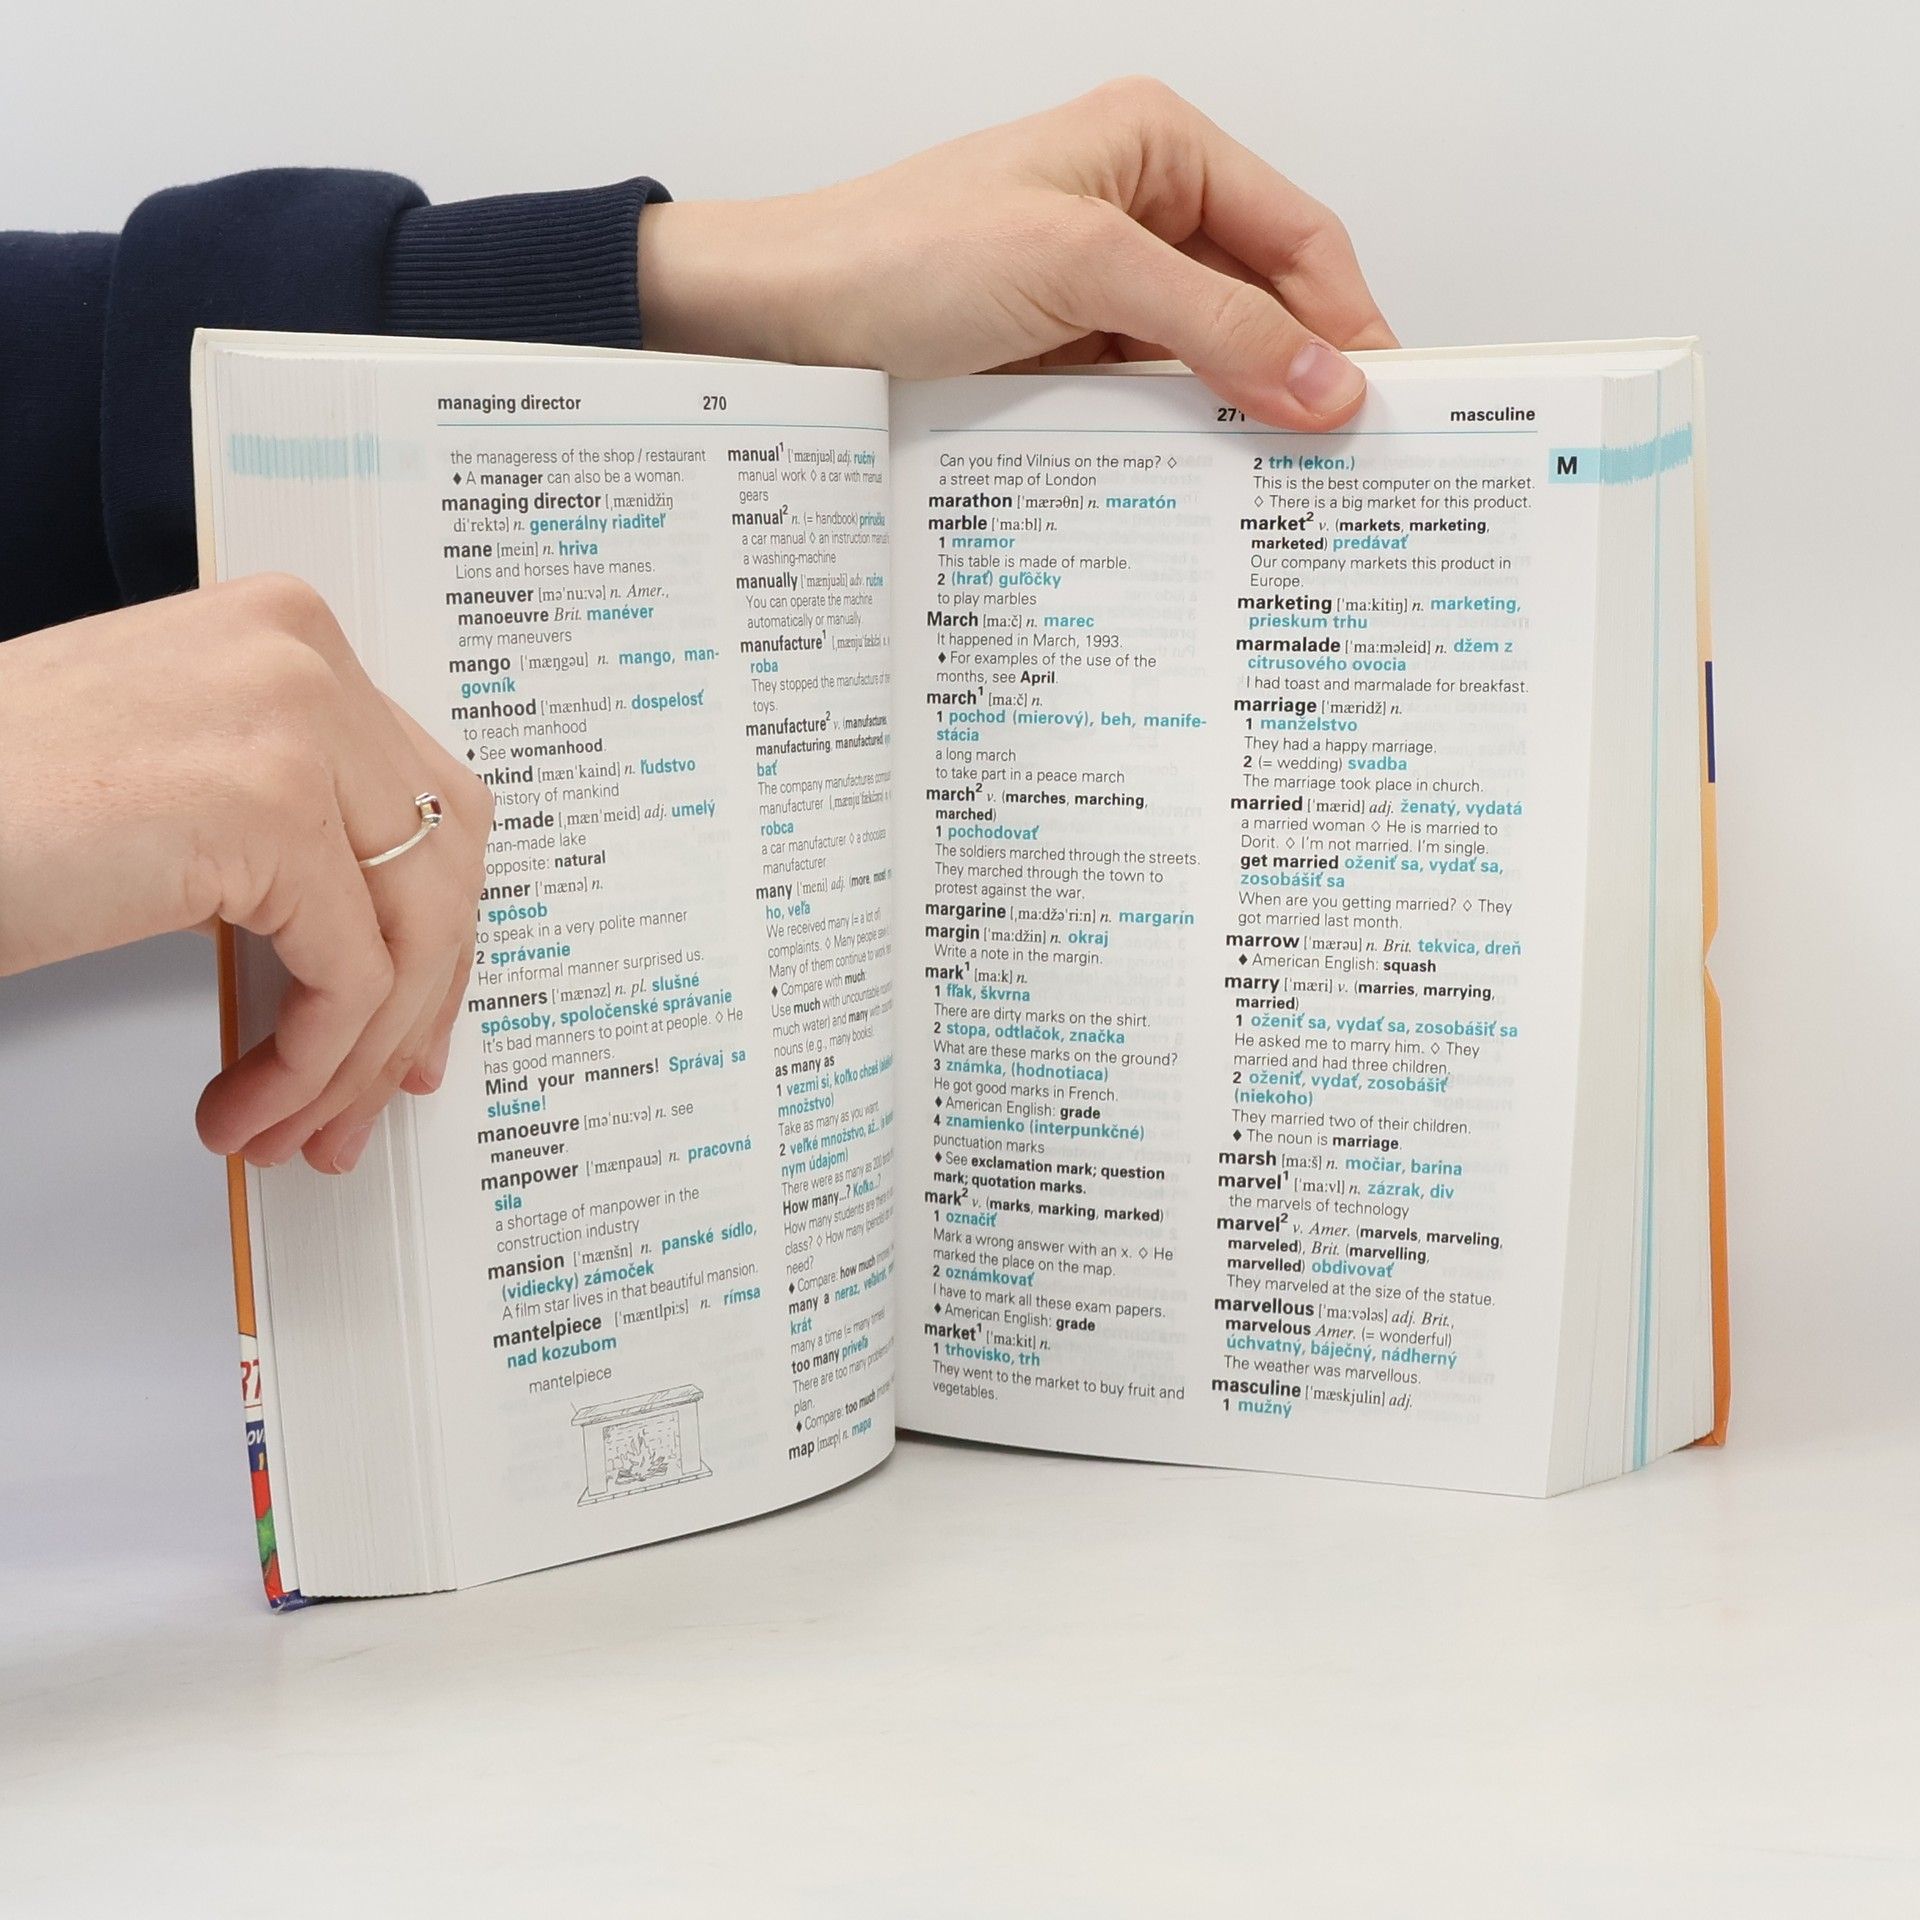 managing director 270
the manageress of the shop / restaurant
♦ A manager can also be a woman.
managing director [ˌmænidžiŋ
di'rektə] n. generálny riaditeľ
mane [mein] n. hriva
Lions and horses have manes.
maneuver [mə'nu:və] n. Amer.,
manoeuvre Brit. manéver
army maneuvers
mango ['mæŋgəu] n. mango, man-
govník
manhood ['mænhud] n. dospelosť
to reach manhood
♦ See womanhood.
nkind [mæn'kaind] n. ľudstvo
history of mankind
-made [ˌmæn'meid] adj. umelý
man-made lake
opposite: natural
anner ['mænə] n.
1 spôsob
to speak in a very polite manner
2 správanie
Her informal manner surprised us.
manners ['mænəz] n. pl. slušné
spôsoby, spoločenské správanie
It's bad manners to point at people. ◊ He
has good manners.
Mind your manners! Správaj sa
slušne!
manoeuvre [mə'nu:və] n. see
maneuver.
manpower ['mænpauə] n. pracovná
sila
a shortage of manpower in the
construction industry
mansion ['mænšn] n. panské sídlo,
(vidiecky) zámoček
A film star lives in that beautiful mansion.
mantelpiece ['mæntlpi:s] n. rímsa
nad kozubom
mantelpiece
manual¹ ['mænjuəl] adj. ručný
manual work ◊ a car with manual
gears
manual² n. (= handbook) príručka
a car manual ◊ an instruction manual
a washing-machine
manually ['mænjuəli] adv. ručne
You can operate the machine
automatically or manually.
manufacture¹
roba
They stopped the manufacture of
toys.
manufacture² v. (manufactures,
manufacturing, manufactured)
bať
The company manufactures
manufacturer
robca
a car manufacturer ◊ a chocolate
manufacturer
many ['meni] adj. (more, most)
ho, veľa
We received many (= a lot of)
complaints. ◊ Many people
Many of them continue to work
♦ Compare with much:
Use much with uncountable
much water) and many with
nouns (e.g., many books).
as many as
1 vezmi si, koľko chceš
množstvo)
Take as many as you want.
2 veľké množstvo, až...
nym údajom)
There were as many as 200
How many...? Koľko...?
How many students are there
class? ◊ How many pencils do
need?
♦ Compare: how much
many a neraz,
krát
many a time (= many times)
too many priveľa
There are too many
plan.
♦ Compare: too much
map [mæp] n. mapa
271 masculine
M
Can you find Vilnius on the map? ◊
a street map of London
marathon ['mærəθn] n. maratón
marble ['ma:bl] n.
1 mramor
This table is made of marble.
2 (hrať) guľôčky
to play marbles
March [ma:č] n. marec
It happened in March, 1993.
♦ For examples of the use of the
months, see April.
march¹ [ma:č] n.
1 pochod (mierový), beh, manife-
stácia
a long march
to take part in a peace march
march² v. (marches, marching,
marched)
1 pochodovať
The soldiers marched through the streets.
They marched through the town to
protest against the war.
margarine [ˌma:džə'ri:n] n. margarín
margin ['ma:džin] n. okraj
Write a note in the margin.
mark¹ [ma:k] n.
1 fľak, škvrna
There are dirty marks on the shirt.
2 stopa, odtlačok, značka
What are these marks on the ground?
3 známka, (hodnotiaca)
He got good marks in French.
♦ American English: grade
4 znamienko (interpunkčné)
punctuation marks
♦ See exclamation mark; question
mark; quotation marks.
mark² v. (marks, marking, marked)
1 označiť
Mark a wrong answer with an x. ◊ He
marked the place on the map.
2 oznámkovať
I have to mark all these exam papers.
♦ American English: grade
market¹ ['ma:kit] n.
1 trhovisko, trh
They went to the market to buy fruit and
vegetables.
2 trh (ekon.)
This is the best computer on the market.
◊ There is a big market for this product.
market² v. (markets, marketing,
marketed) predávať
Our company markets this product in
Europe.
marketing ['ma:kitiŋ] n. marketing,
prieskum trhu
marmalade ['ma:məleid] n. džem z
citrusového ovocia
I had toast and marmalade for breakfast.
marriage ['mæridž] n.
1 manželstvo
They had a happy marriage.
2 (= wedding) svadba
The marriage took place in church.
married ['mærid] adj. ženatý, vydatá
a married woman ◊ He is married to
Dorit. ◊ I'm not married. I'm single.
get married oženiť sa, vydať sa,
zosobášiť sa
When are you getting married? ◊ They
got married last month.
marrow ['mærəu] n. Brit. tekvica, dreň
♦ American English: squash
marry ['mæri] v. (marries, marrying,
married)
1 oženiť sa, vydať sa, zosobášiť sa
He asked me to marry him. ◊ They
married and had three children.
2 oženiť, vydať, zosobášiť
(niekoho)
They married two of their children.
♦ The noun is marriage.
marsh [ma:š] n. močiar, barina
marvel¹ ['ma:vl] n. zázrak, div
the marvels of technology
marvel² v. Amer. (marvels, marveling,
marveled), Brit. (marvelling,
marvelled) obdivovať
They marveled at the size of the statue.
marvellous ['ma:vələs] adj. Brit.,
marvelous Amer. (= wonderful)
úchvatný, báječný, nádherný
The weather was marvellous.
masculine ['mæskjulin] adj.
1 mužný